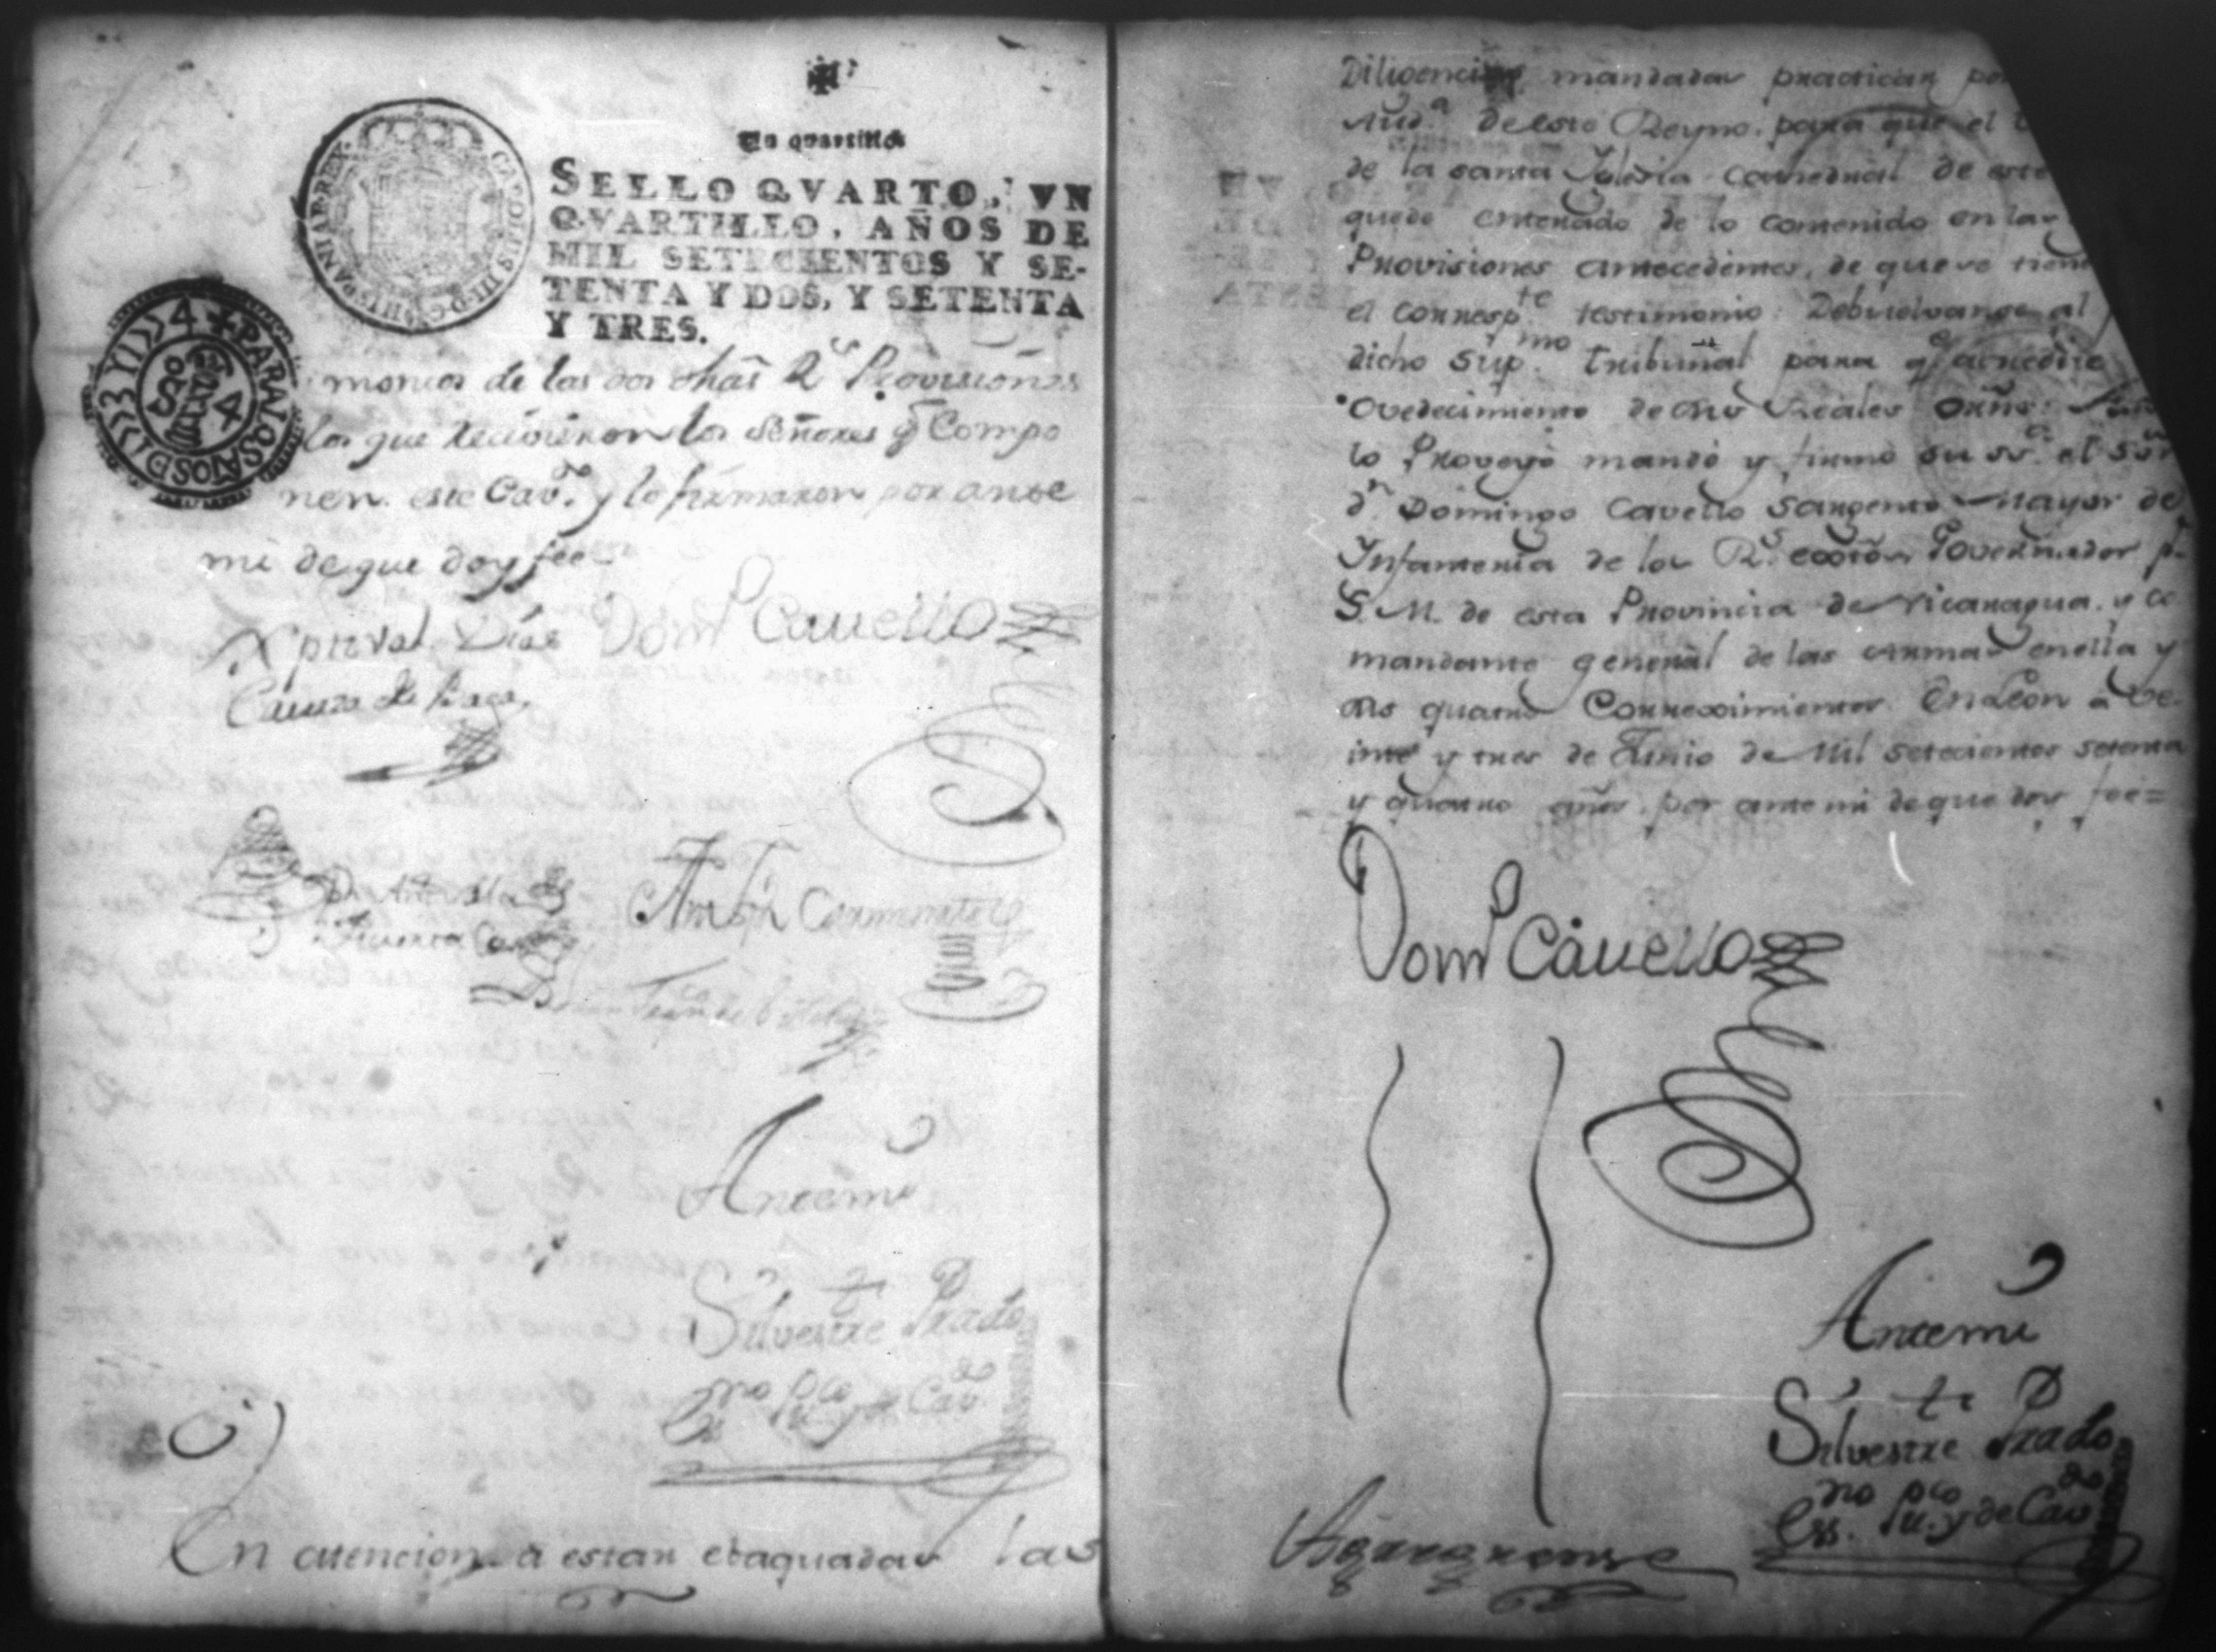 Un quartillo
SELLO QVARTO, VN
QVARTILLO, AÑOS DE
MIL SETECIENTOS Y SE-
TENTA Y DOS, Y SETENTA
Y TRES.
CAROLUS III D G HISPANIAR REX
PARA LOS AÑOS D 1773 Y 1774
monios de las dos chas Rs Provisiones
los que recivieron los Señores q Compo
nen este Cavdo. y lo firmaron por ante
mi de que doy fee
Xptoval Dias Domo Cauello
de Baca
Antto
Ante mi
Silvestre Prado
Essno Puco y de Cavdo
En atencion à estàr ebaquadas las
Diligencias mandadas practicar po
Auda de este Reyno, para que el
de la santa Iglesia Cathedràl de este
quede entendido de lo contenido en las
Provisiones antecedentes, de que ve tiene
el correspte testimonio: Debuelvanse al
dicho Supmo Tribunal para qe acredite
Ovedecimiento de Reales
lo Proveyò mandò y firmo su Sa el Sor
dn Domingo Cavello Sargento Mayor de
Infanteria de los Rs Governador pr
S. M. de esta Provincia de Nicaragua, y co
mandante generàl de las Armas en ella y
sus quatro Corregimientos. En Leon à ve-
inte y tres de Junio de Mil setecientos setenta
y quatro años, por ante mi de que doy fee=
Domo Cauello
Ante mi
Silvestre Prado
Essno Puco y de Cavdo
Agreguense